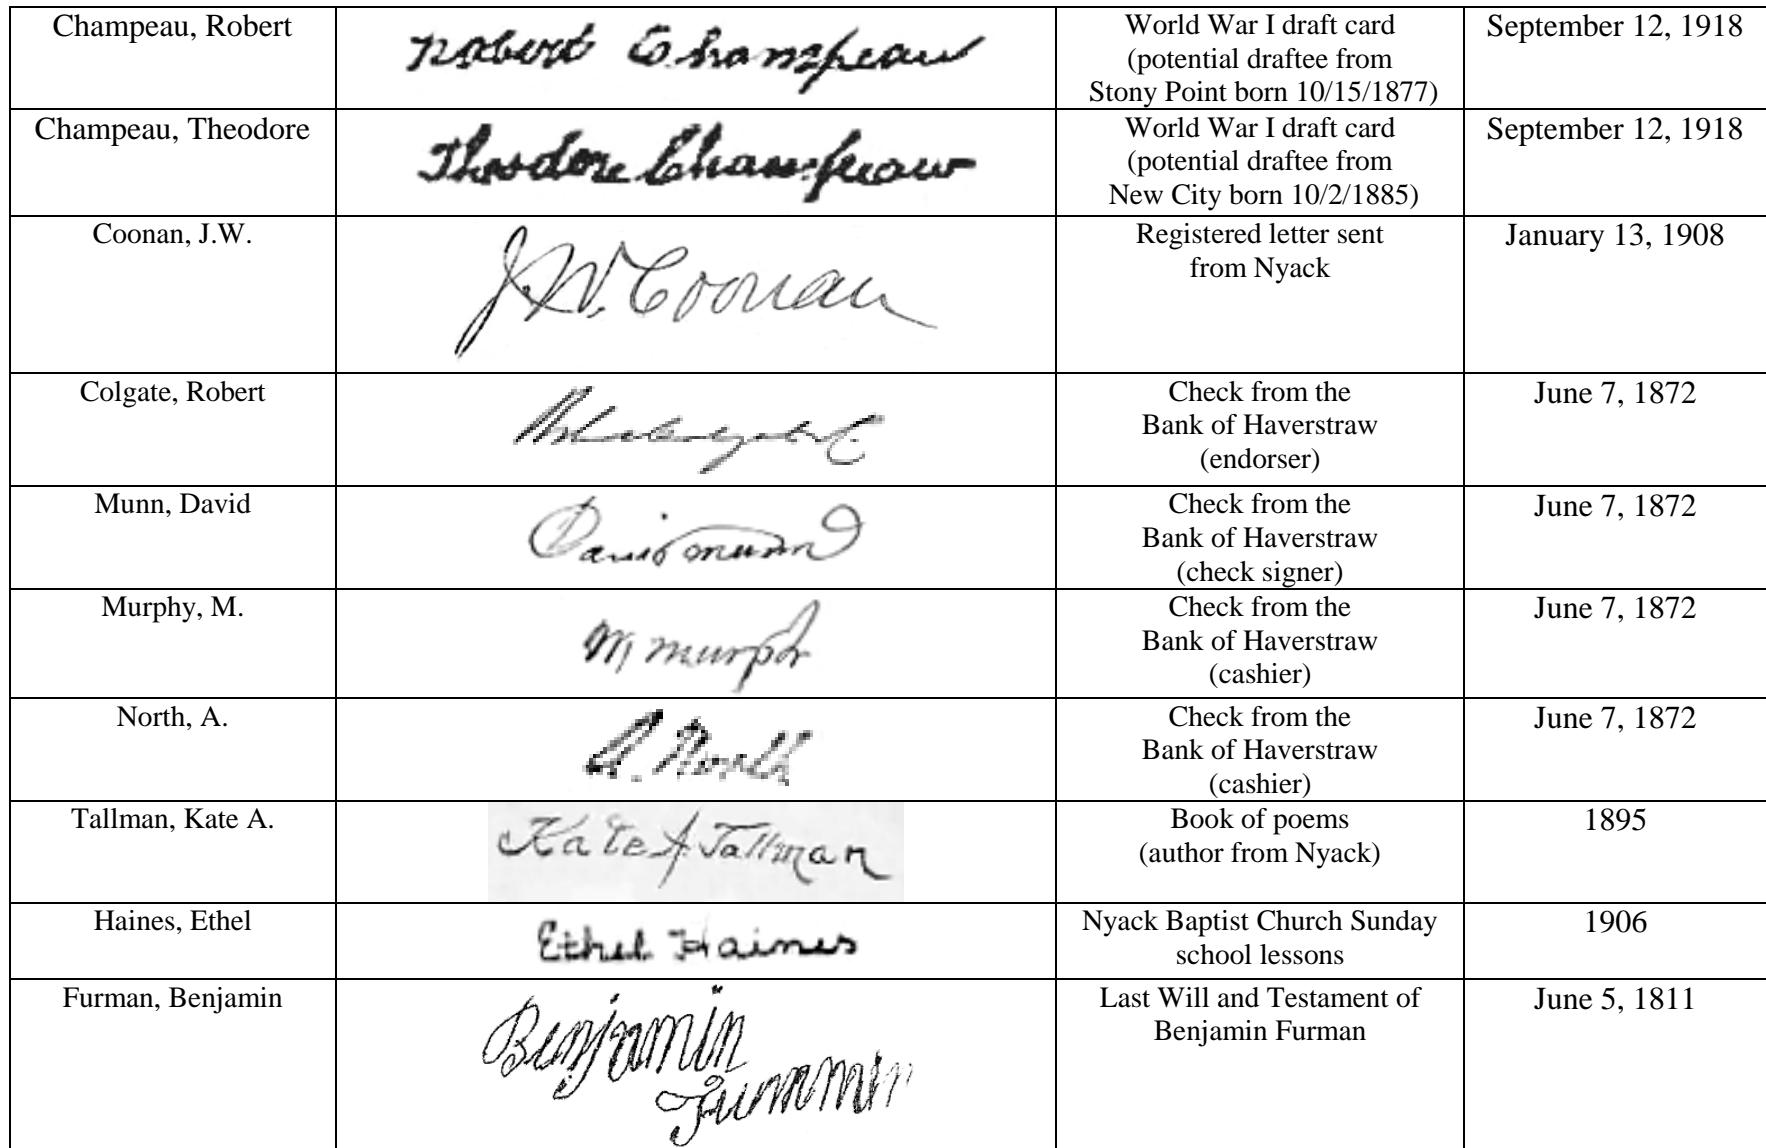 Champeau, Robert
Robert Champeau
World War I draft card
(potential draftee from
Stony Point born 10/15/1877)
September 12, 1918
Champeau, Theodore
Theodore Champeau
World War I draft card
(potential draftee from
New City born 10/2/1885)
September 12, 1918
Coonan, J.W.
J.W. Coonan
Registered letter sent
from Nyack
January 13, 1908
Colgate, Robert
Check from the
Bank of Haverstraw
(endorser)
June 7, 1872
Munn, David
David Munn
Check from the
Bank of Haverstraw
(check signer)
June 7, 1872
Murphy, M.
M Murphy
Check from the
Bank of Haverstraw
(cashier)
June 7, 1872
North, A.
A. North
Check from the
Bank of Haverstraw
(cashier)
June 7, 1872
Tallman, Kate A.
Kate A Tallman
Book of poems
(author from Nyack)
1895
Haines, Ethel
Ethel Haines
Nyack Baptist Church Sunday
school lessons
1906
Furman, Benjamin
Benjamin
Furmmin
Last Will and Testament of
Benjamin Furman
June 5, 1811